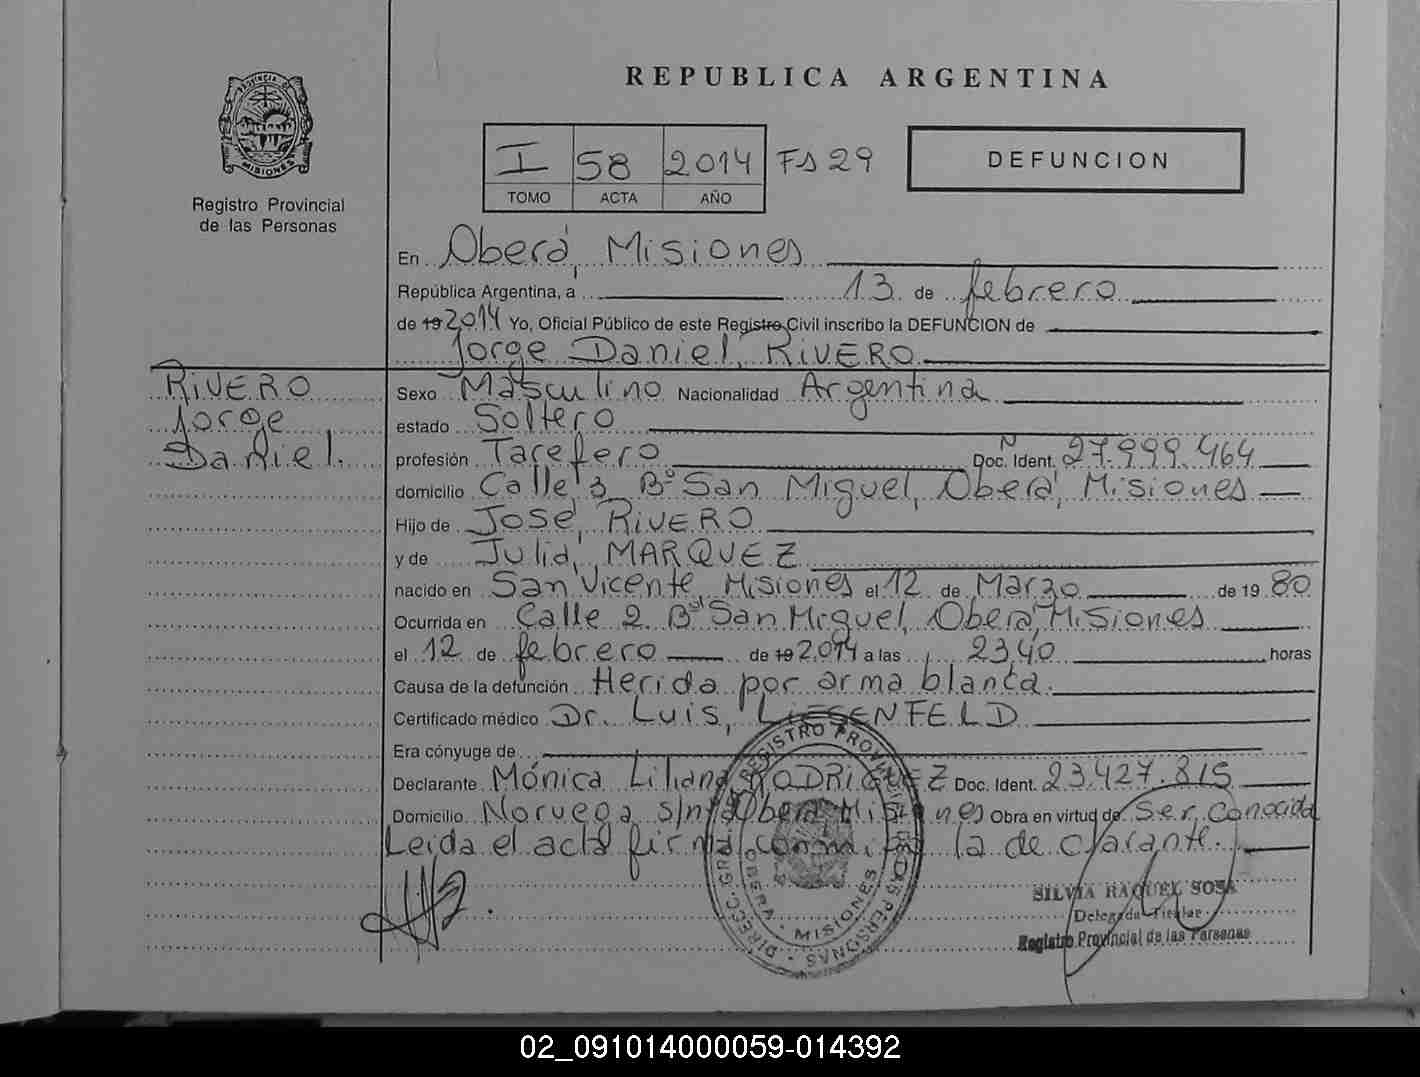 PROVINCIA DE MISIONES
Registro Provincial
de las Personas
REPUBLICA ARGENTINA
I 58 2014 Fs 29
TOMO ACTA AÑO
DEFUNCION
En Oberá, Misiones
República Argentina, a 13 de febrero
de 19 2014 Yo, Oficial Público de este Registro Civil inscribo la DEFUNCION de
Jorge Daniel, RIVERO
RIVERO
Jorge
Daniel.
Sexo Masculino Nacionalidad Argentina
estado Soltero
profesión Tarefero Doc. Ident. N 27.999.464
domicilio Calle 3 Bº San Miguel, Oberá, Misiones
Hijo de José, RIVERO
y de Julia, MARQUEZ
nacido en San Vicente, Misiones el 12 de Marzo de 19 80
Ocurrida en Calle 2 Bº San Miguel, Oberá, Misiones
el 12 de febrero de 19 2014 a las 23,40 horas
Causa de la defunción Herida por arma blanca.
Certificado médico Dr. Luis, LIESENFELD
Era cónyuge de
Declarante Mónica Liliana RODRIGUEZ Doc. Ident. 23.427.815
Domicilio Noruega s/n Oberá Misiones Obra en virtud de Ser Conocida
Leida el acta firma conmigo la declarante.
DIRECC. GRAL. REGISTRO PROVINCIAL DE LAS PERSONAS
OBERA - MISIONES
SILVIA RAQUEL SOSA
Delegada Titular
Registro Provincial de las Personas
02_091014000059-014392